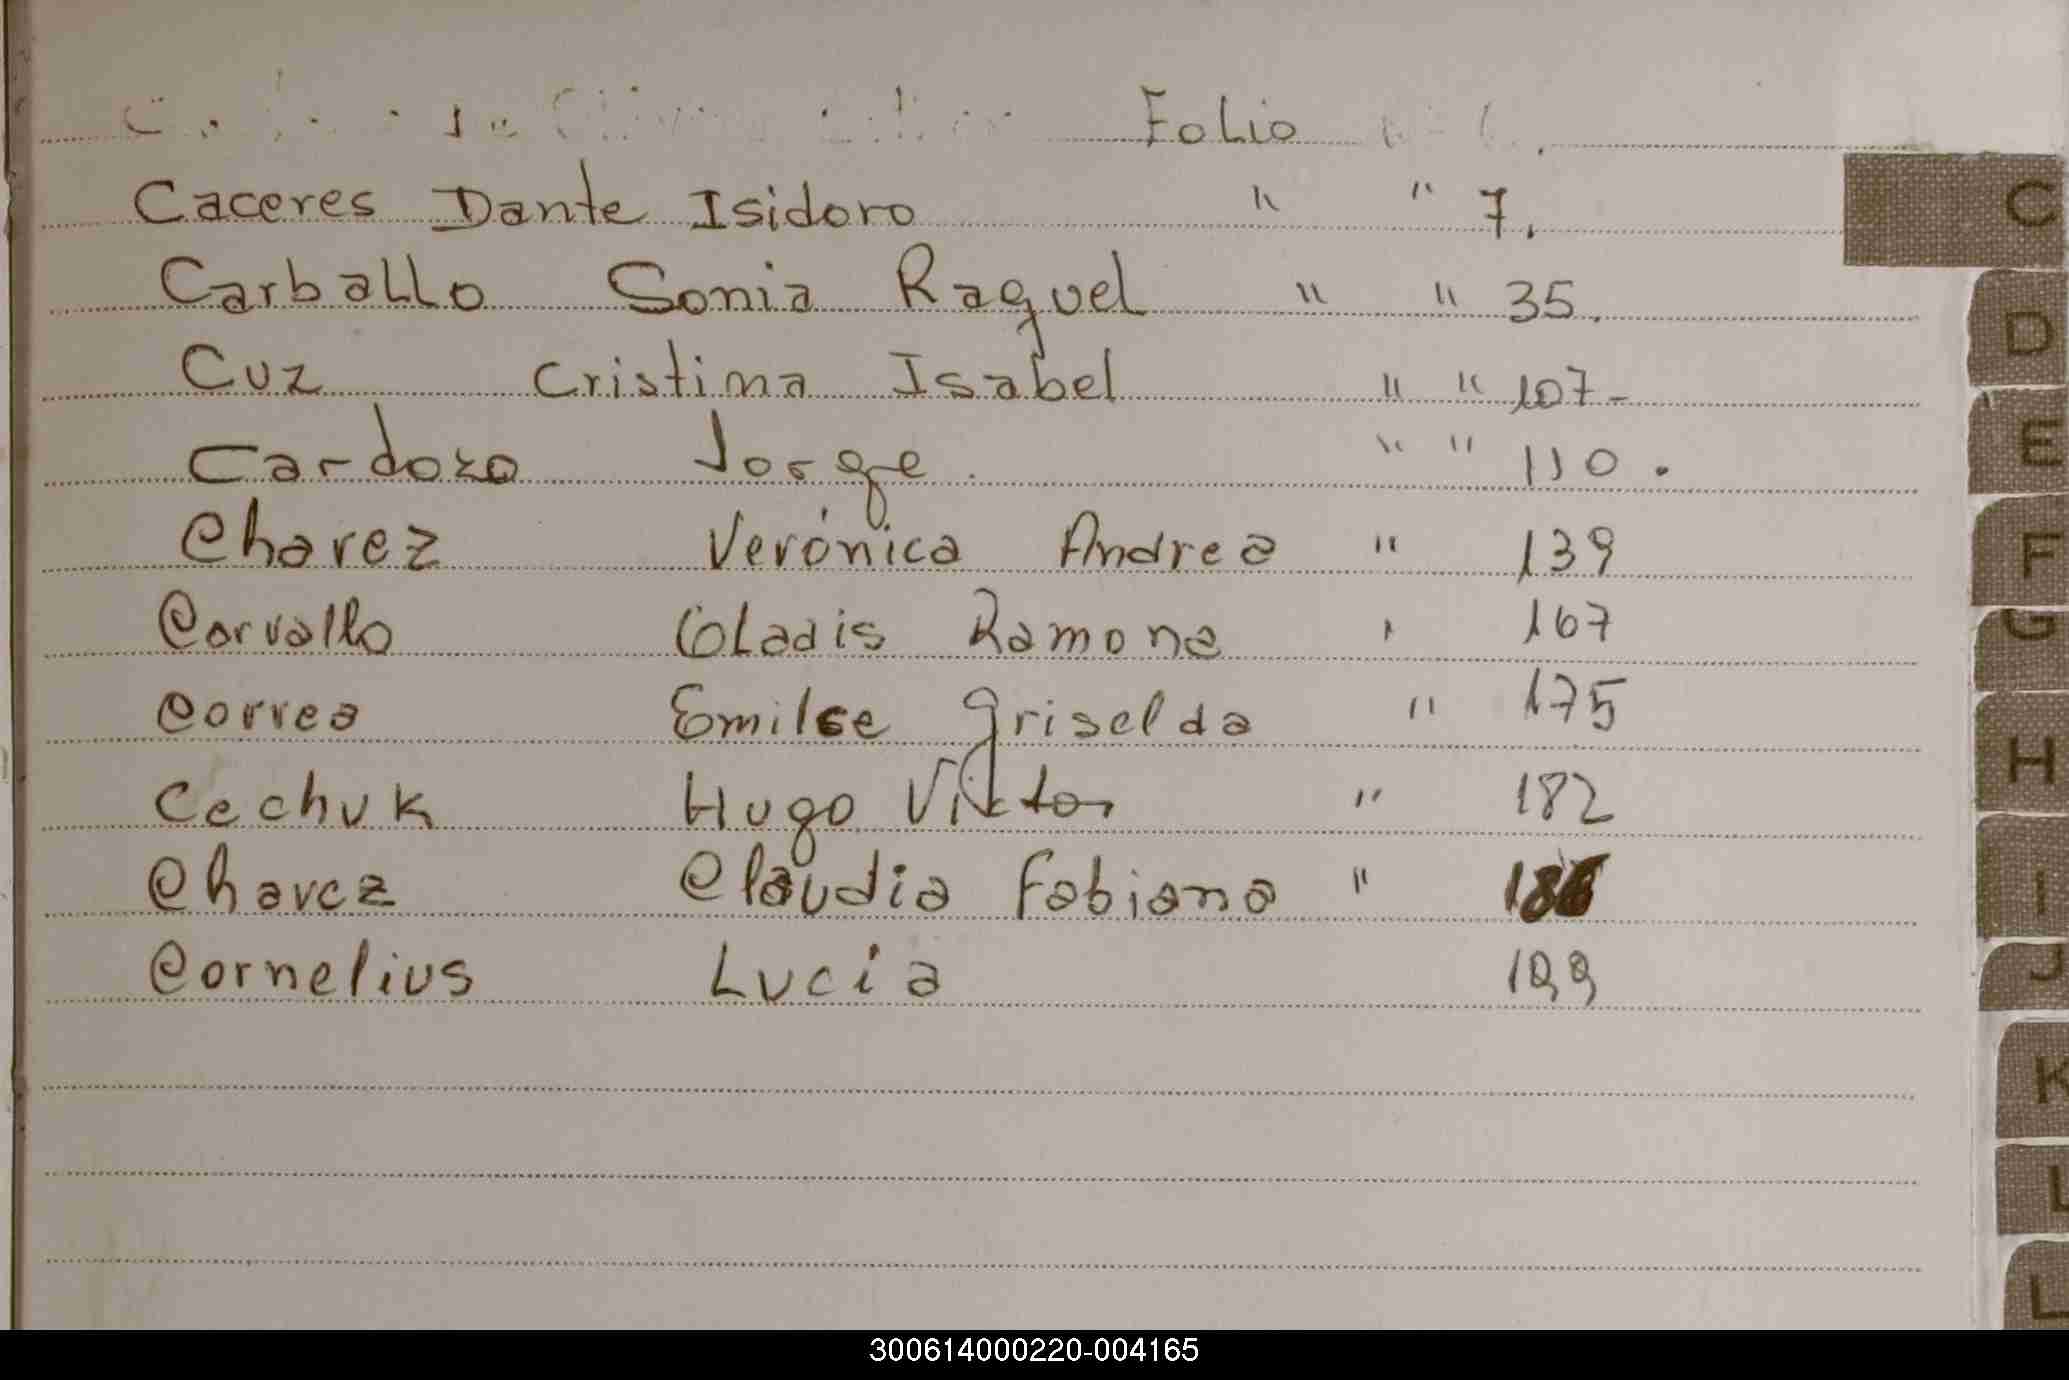 Folio
Caceres Dante Isidoro " " 7.
Carballo Sonia Raquel " " 35.
Cuz Cristina Isabel " " 107-
Cardozo Jorge. " " 110.
Chavez Verónica Andrea " 139
Carvallo Gladis Ramona " 167
Correa Emilse Griselda " 175
Cechuk Hugo Victor " 182
Chavez Claudia Fabiana "
Cornelius Lucia 199
C
D
E
F
G
H
I
J
K
L
L
300614000220-004165